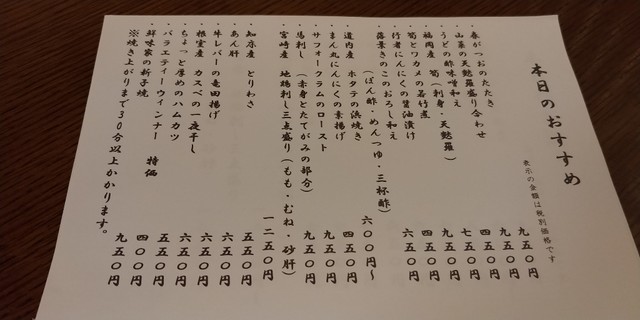 本日のおすすめ
表示の金額は税別価格です
・春がつおのたたき 九五〇円
・山菜の天麩羅盛り合わせ 九五〇円
・うどの酢味噌和え 四五〇円
・福岡産 筍(刺身・天麩羅) 七五〇円
・筍とワカメの若竹煮 五五〇円
・行者にんにくの醤油漬け 四五〇円
・落葉きのこのおろし和え 六五〇円
(ぽん酢・めんつゆ・三杯酢)
・道内産 ホタテの浜焼き 六〇〇円〜
・まん丸にんにくの素揚げ 五五〇円
・サフォークラムのロースト 九五〇円
・馬刺し(赤身とたてがみの部分) 九五〇円
・宮崎産 地鶏刺し三点盛り(もも・むね・砂肝)
一二五〇円
・知床産 とりわさ 五五〇円
・あん肝 五五〇円
・牛レバーの竜田揚げ 六五〇円
・根室産 カスベの一夜干し 六五〇円
・ちょっと厚めのハムカツ 五五〇円
・バラエティーウィンナー 特価 四〇〇円
・鮮味家の新子焼 九五〇円
※焼き上がりまで30分以上かかります。